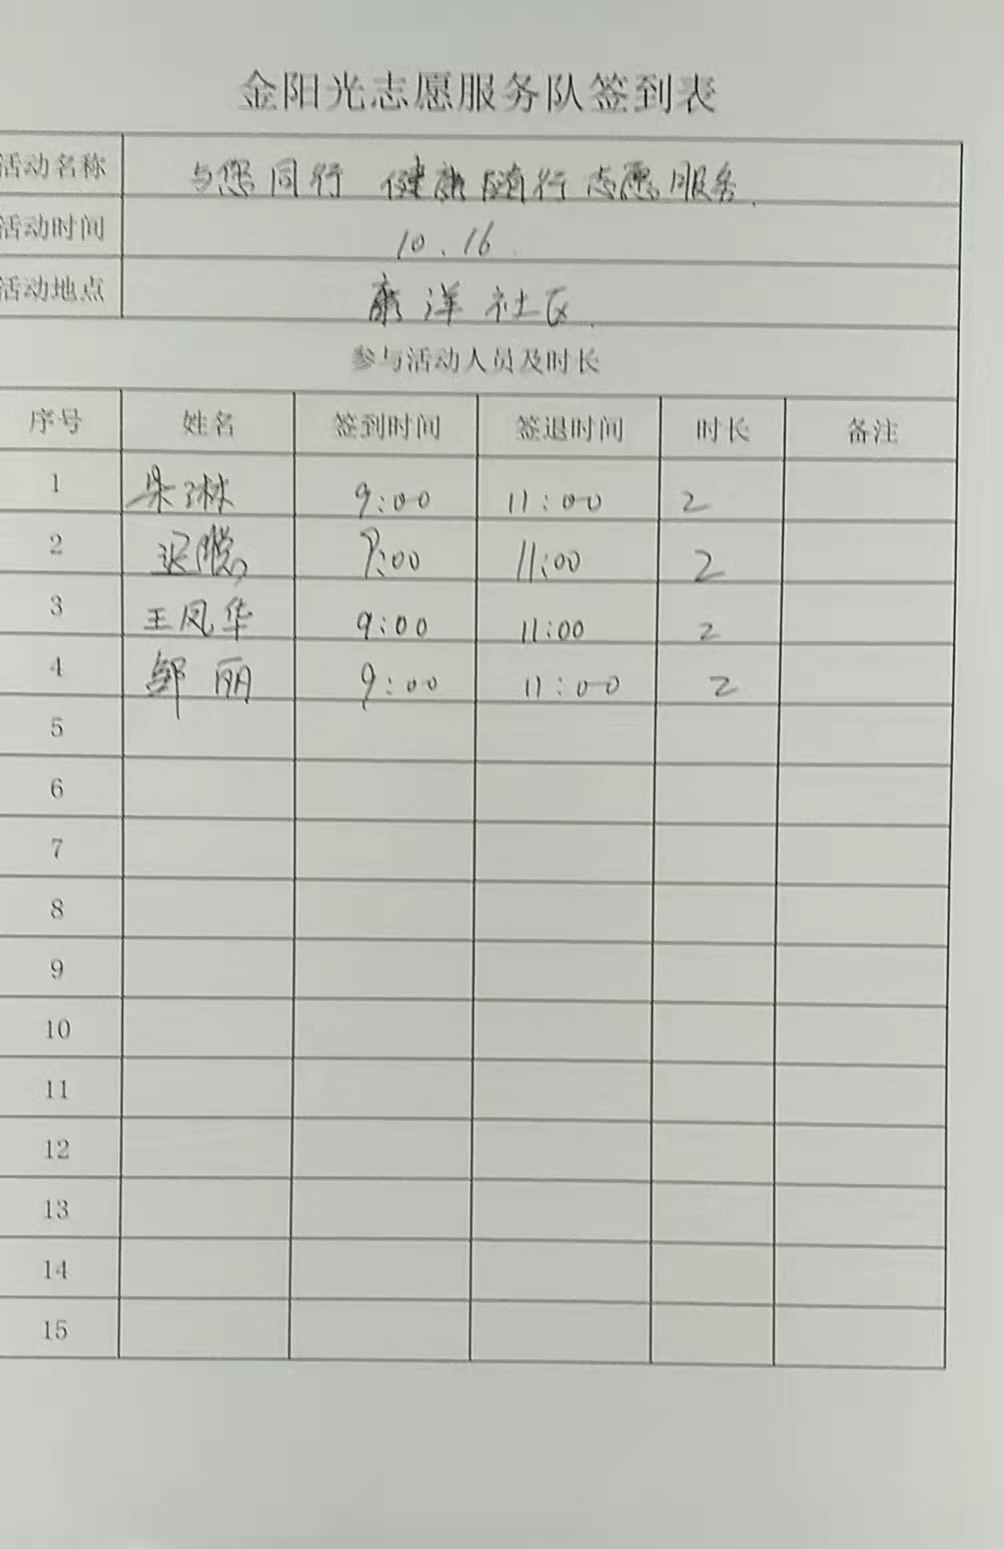 金阳光志愿服务队签到表
活动名称 与您同行 健康随行志愿服务
活动时间 10.16
活动地点 康洋社区
参与活动人员及时长
序号 姓名 签到时间 签退时间 时长 备注
1 朱琳 9:00 11:00 2
2 9:00 11:00 2
3 王凤华 9:00 11:00 2
4 邹丽 9:00 11:00 2
5
6
7
8
9
10
11
12
13
14
15